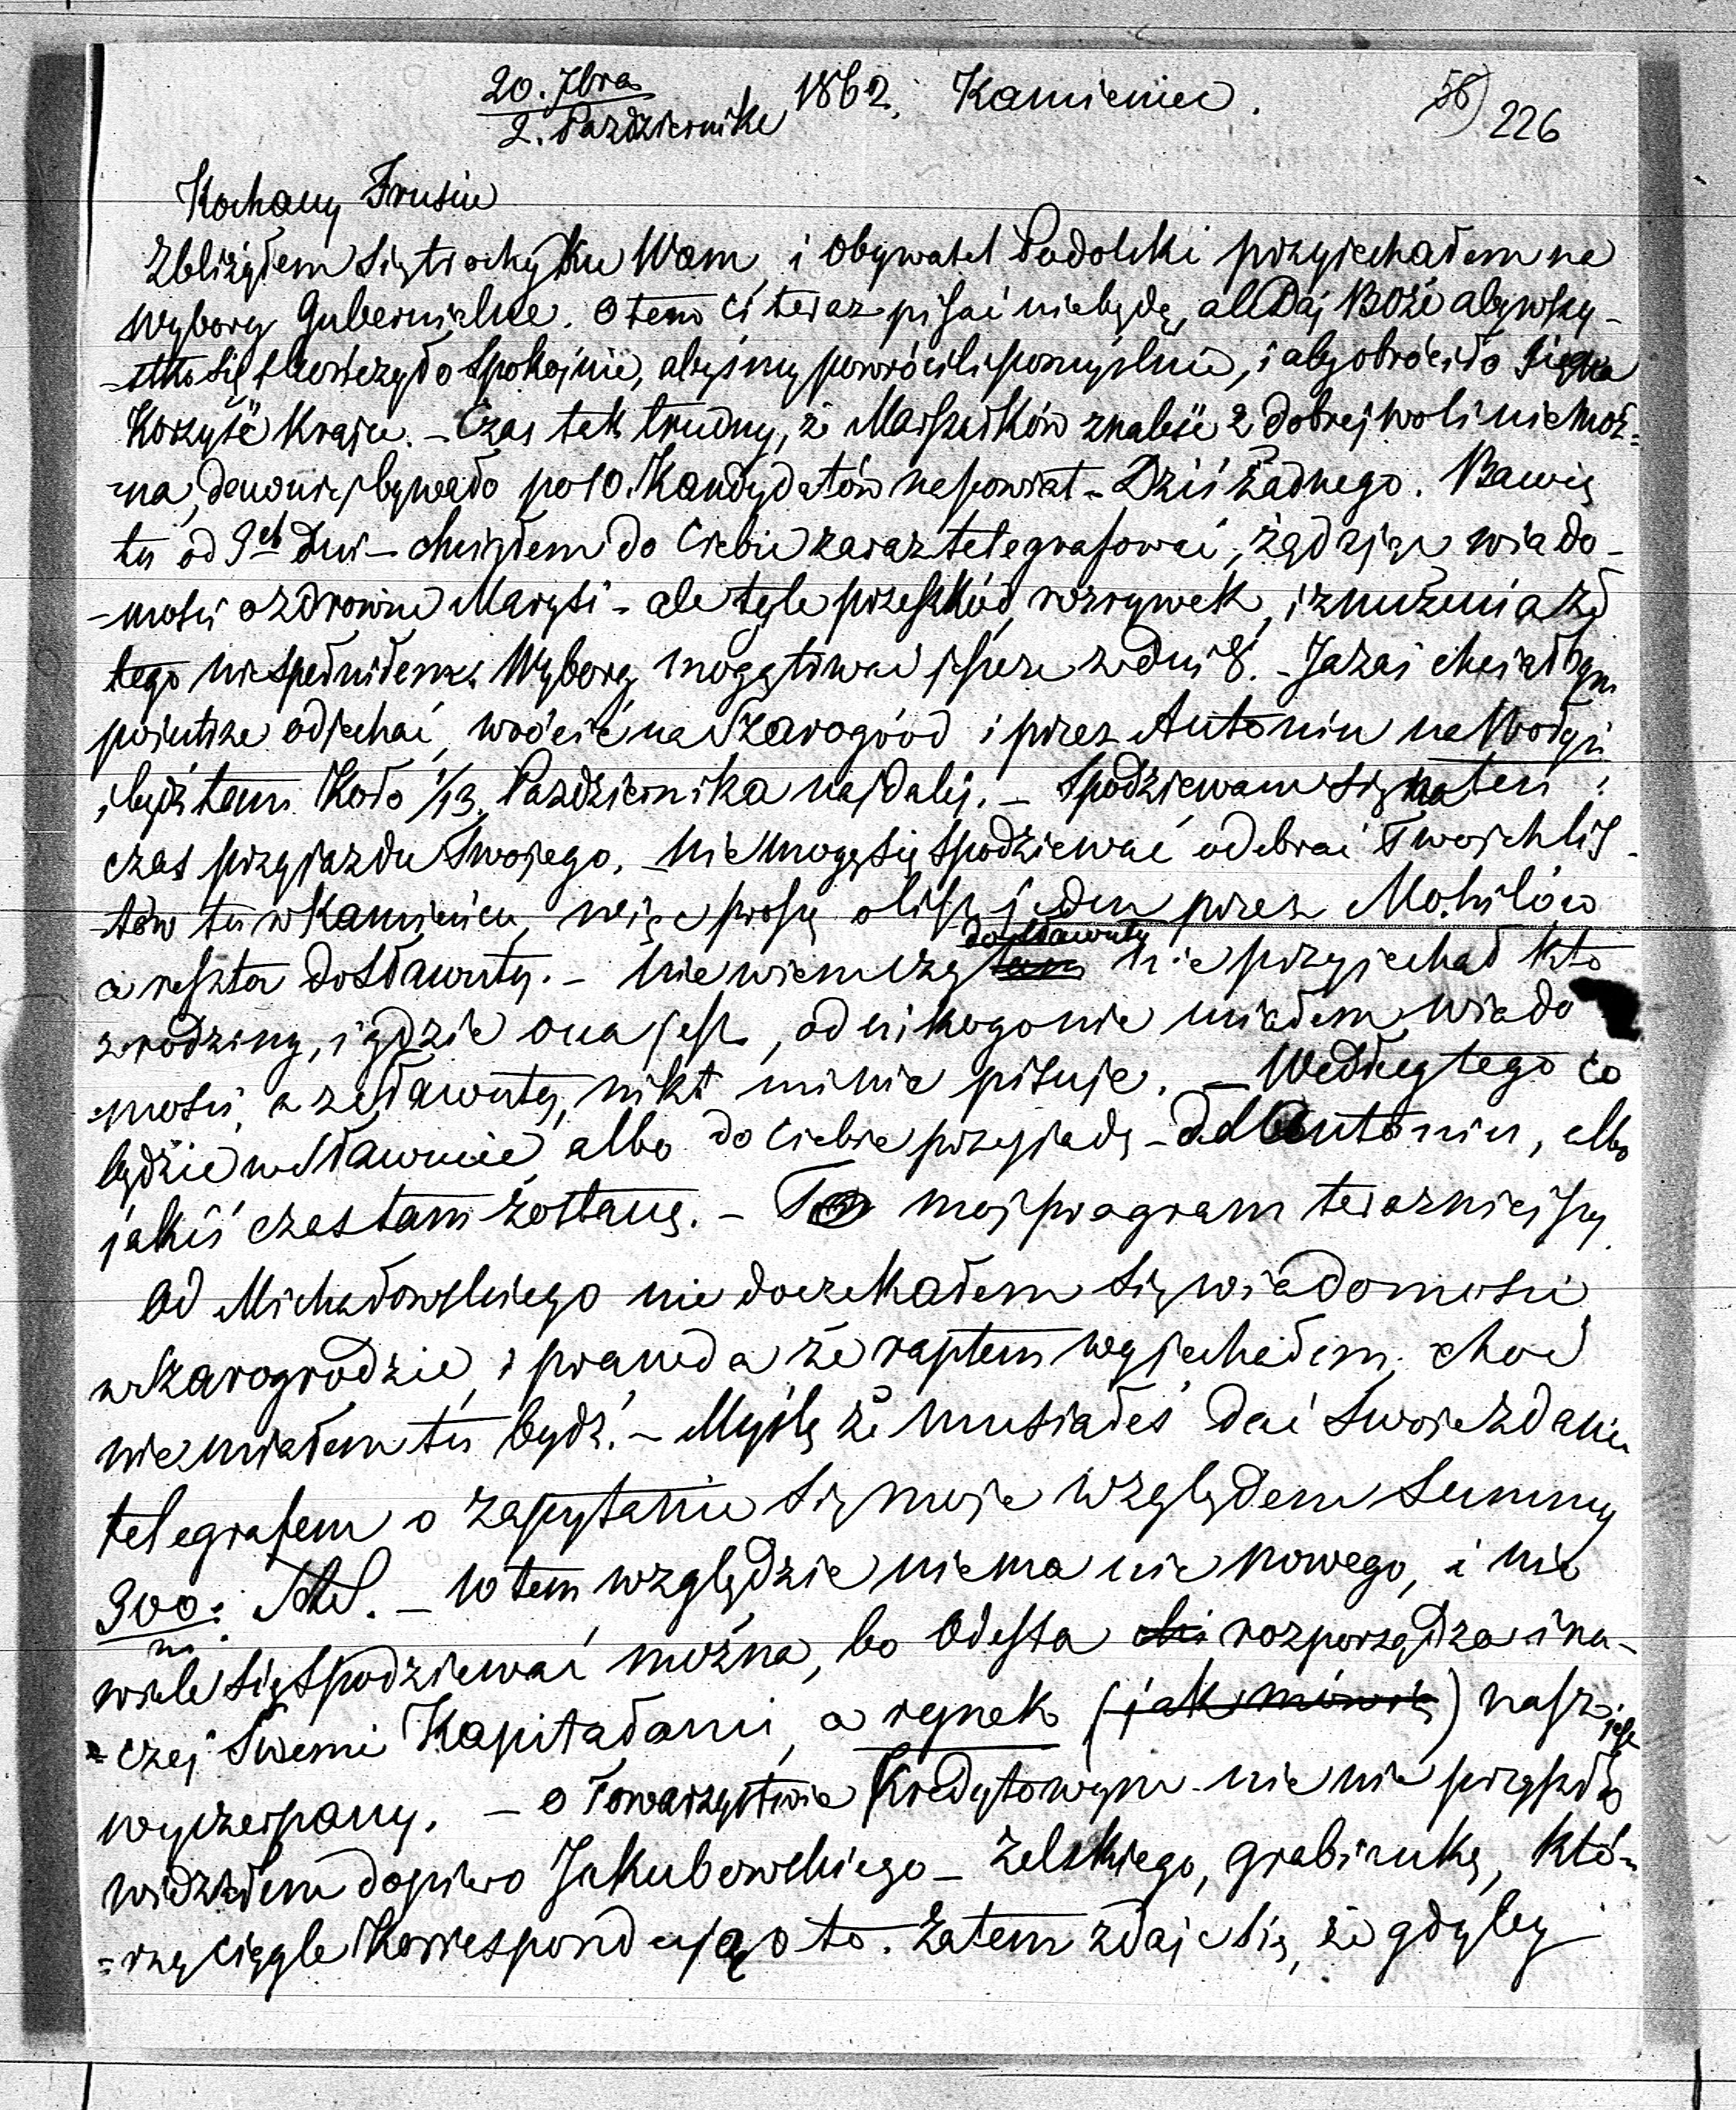 20. 7bra
2. Pazdziernika 1862. Kamieniec.
58) 226
Kochany Frusiu
Zbliżyłem się trochę ku Wam, i obywatel Podolski przyjechałem na
wybory Gubernialne. O tem Ci teraz pisać niebędę, ale Daj Boże aby wszy-
-stko się skończyło spokojnie, abyśmy powrócili pomyślnie, i aby obróciło się na
Korzyść Kraju. – Czas tak trudny, że Marszałków znaleść z dobrej woli niemoż=
-na, dawniej bywało po 10. Kandydatów na powiat – Dziś żadnego. Bawię
tu od 9ch Dni – chciałem do Ciebie zaraz telegrafować, żądając wiado-
-mości o zdrowiu Marysi – ale tyle przeszkód, rozrywek, i znużenia że
tego niespełniłem. Wybory mogą trwać jeszcze z dni 8. – Ja zaś chciałbym
pojutrze odjechać, wrócić na Szarogród i przez Antonin na Wołyń
i bydź tam Koło 1/13. Pazdziernika najdalej. – Spodziewam się na ten
czas przyjazdu Twojego. – nie mogę się spodziewać odebrać Twoich lis-
-tów tu w Kamieńcu, więc proszę o list jeden przez Mohilów
a reszta do Sławuty. – Nie wiem czy do Sławuty nie przyjechał kto
z rodziny, i gdzie ona jest, od nikogo nie miałem wiado
-mości, a ze Sławuty, nikt mi nie pisuje. – Według tego co
będzie w Sławucie, albo do Ciebie przyjadę – do Antonin, albo
jakiś czas tam zostanę. – To moj program terazniejszy.
Od Michałowskiego nie doczekałem się wiadomości
w Szarogrodzie, i prawda że raptem wyjechałem, choć
nie miałem tu bydź. – Myślę że musiałeś dać swoje zdanie
telegrafem o zapytanie się moje względem Summy
300: – W tem względzie niema nic nowego, i nie
wiele się spodziewać można, bo Odessa rozporządza ina-
-czej Swemi Kapitałami, a rynek (jak mówią) nasz jest
wyczerpany. – O Towarzystwie Kredytowym nic nie przyszło
widziałem dopiero Jakubowskiego – Zelskiego, Grabiankę, któ-
=rzy ciągle Korrespondują o to. Zatem zdaje się, że gdyby